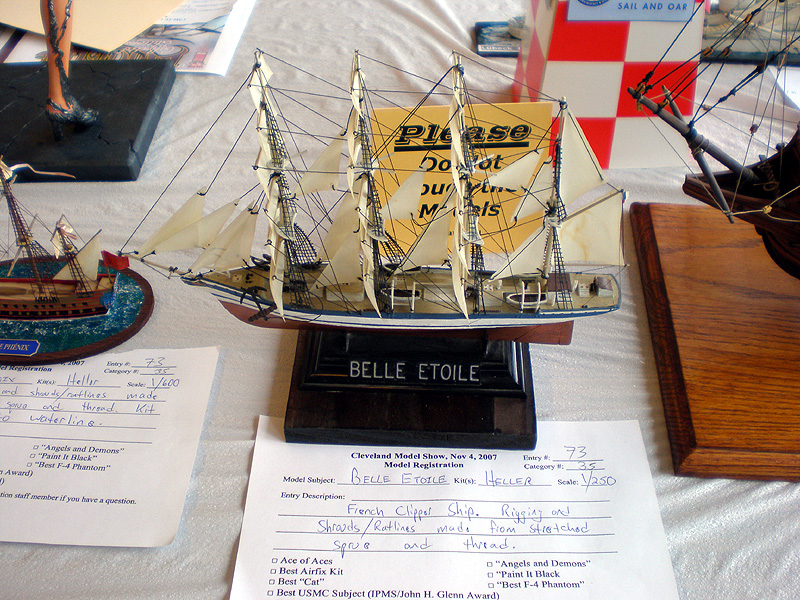 SAIL AND OAR
Please
Do Not
the
Models
BELLE ETOILE
PHÉNIX
, 2007
Model Registration
Entry #: 73
Category #: 35
Kit(s): Heller
Scale: 1/600
and shrouds/ratlines made
sprue and thread. Kit
waterline.
□ "Angels and Demons"
□ "Paint It Black"
□ "Best F-4 Phantom"
Award)
staff member if you have a question.
Cleveland Model Show, Nov 4, 2007
Model Registration
Entry #: 73
Category #: 35
Model Subject: BELLE ETOILE Kit(s): HELLER Scale: 1/250
Entry Description:
French Clipper Ship. Rigging and
Shrouds/Ratlines made from stretched
sprue and thread.
□ Ace of Aces
□ Best Airfix Kit
□ Best "Cat"
□ Best USMC Subject (IPMS/John H. Glenn Award)
□ "Angels and Demons"
□ "Paint It Black
□ "Best F-4 Phantom"